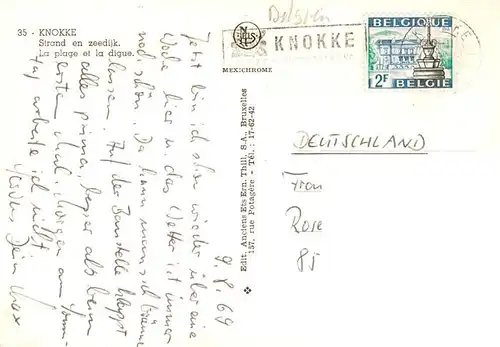 35 - KNOKKE
Strand en zeedijk.
La plage et la digue.
MEXICHROME
Edit. Anciens Ets Ern. Thill, S.A., Bruxelles
157, rue Potagère - Tél. : 17-62-42
Belgien
KNOKKE
BELGIQUE
2F
BELGIE
9.8.69
Jetzt bin ich schon wieder über eine
Woche hier u. das Wetter ist immer
noch schön. Da kann man sich bräunen
lassen. Auf der Baustelle klappt
alles prima, besser als beim
ersten Mal. Morgen am Sonn-
tag arbeite ich nicht
Dein Max
DEUTSCHLAND
Frau
Rose
85